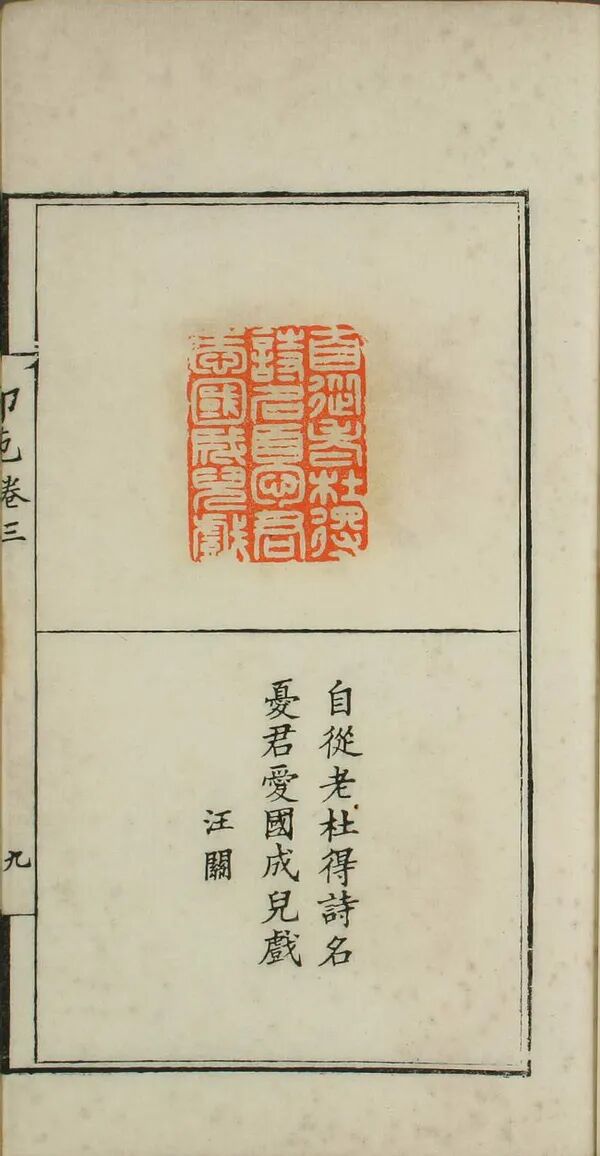 自從老杜得
詩名憂君
愛國成兒戲
自從老杜得詩名
憂君愛國成兒戲
汪關
卷三
九